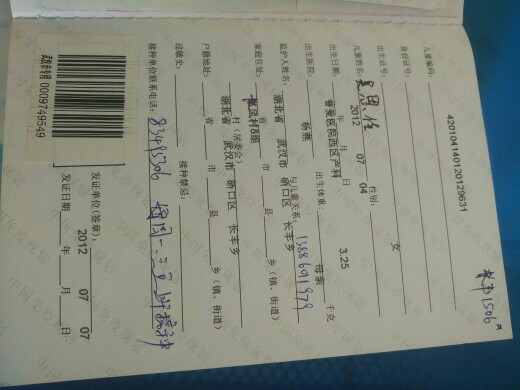 儿童编码: 420104140120129631
身份证号:
出生证号:
儿童姓名: 性别: 女
出生日期: 2012 年 07 月 04 日
出生医院: 普爱医院西区产科 出生体重: 3.25 千克
监护人姓名: 杨燕 与儿童关系: 母亲
家庭住址: 湖北省 武汉市 硚口区 长丰乡
省 市 县 乡(镇、街道)
村(居委会)
户籍地址: 湖北省 武汉市 硚口区 长丰乡
省 市 县 乡(镇、街道)
过敏史: 接种禁忌:
接种单位联系电话: 83495306
发证单位(签章):
发证日期: 2012 年 07 月 07 日
武汉市专用 0009749549